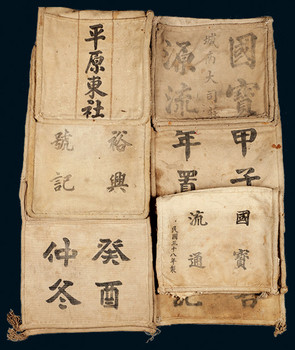 平原東社
裕興
號記
癸酉
仲冬
國寶
城南大司
源流
甲子
年置
國寶
流通
民國三十八年製